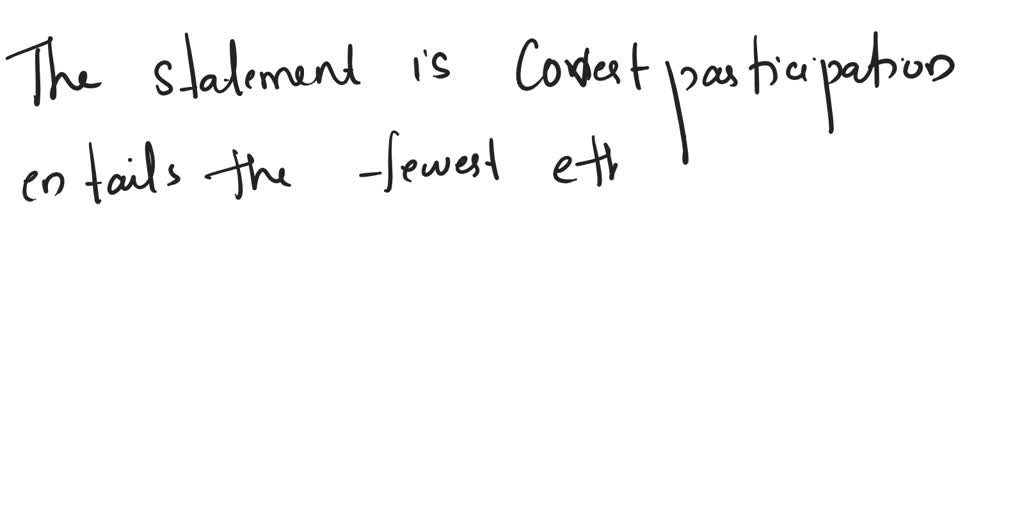 The statement is Covert participation
entails the fewest eth